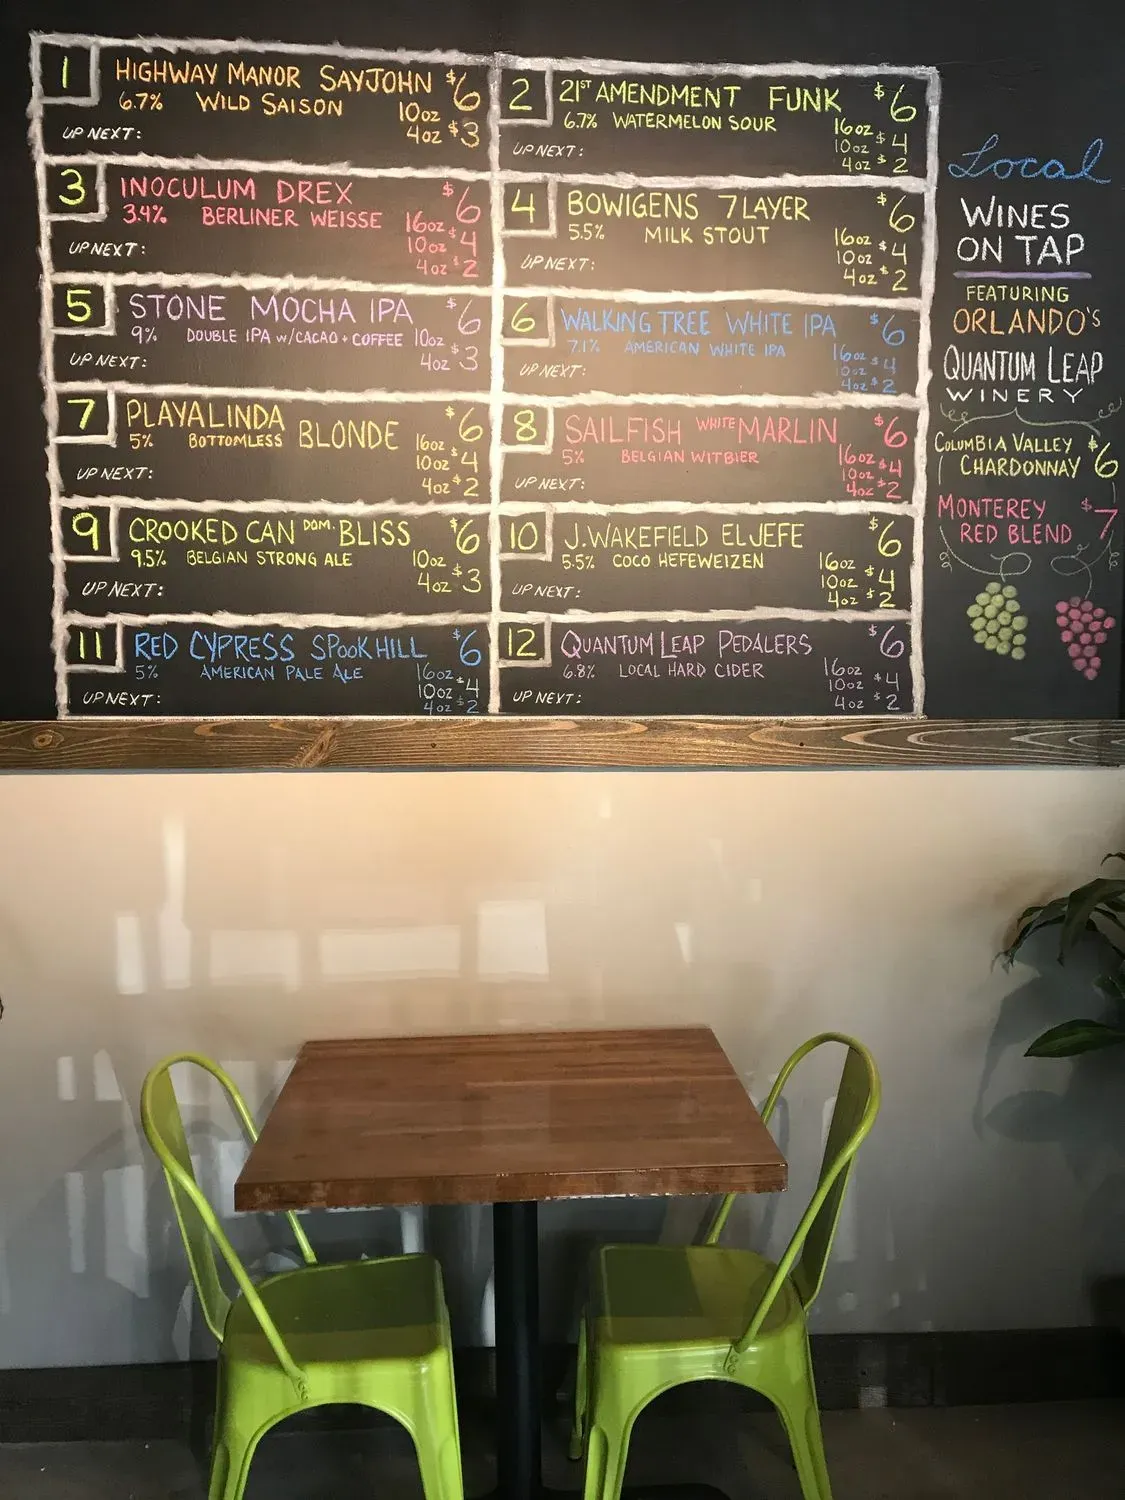 1
HIGHWAY MANOR SAYJOHN $6
6.7% WILD SAISON 10oz
4oz $3
UP NEXT:
2
21ST AMENDMENT FUNK $6
6.7% WATERMELON SOUR 16oz
10oz $4
UP NEXT:
4oz $2
3
INOCULUM DREX $6
3.4% BERLINER WEISSE 16oz
UP NEXT: 10oz $4
4oz $2
4
BOWIGENS 7 LAYER $6
5.5% MILK STOUT 16oz
10oz $4
UP NEXT:
4oz $2
5
STONE MOCHA IPA $6
9% DOUBLE IPA w/CACAO + COFFEE 10oz
UP NEXT: 4oz $3
6
WALKING TREE WHITE IPA $6
7.1% AMERICAN WHITE IPA 16oz
UP NEXT: 10oz $4
4oz $2
7
PLAYALINDA $6
5% BOTTOMLESS BLONDE 16oz
10oz $4
UP NEXT:
4oz $2
8
SAILFISH WHITE MARLIN $6
5% BELGIAN WITBIER 16oz
10oz $4
UP NEXT: 4oz $2
9
CROOKED CAN DOM. BLISS $6
9.5% BELGIAN STRONG ALE 10oz
UP NEXT: 4oz $3
10
J. WAKEFIELD EL JEFE $6
5.5% COCO HEFEWEIZEN 16oz
10oz $4
UP NEXT: 4oz $2
11
RED CYPRESS SPOOK HILL $6
5% AMERICAN PALE ALE 16oz
10oz $4
UP NEXT: 4oz $2
12
QUANTUM LEAP PEDALERS $6
6.8% LOCAL HARD CIDER 16oz
10oz $4
UP NEXT: 4oz $2
Local
WINES
ON TAP
FEATURING
ORLANDO'S
QUANTUM LEAP
WINERY
COLUMBIA VALLEY $6
CHARDONNAY
MONTEREY $7
RED BLEND